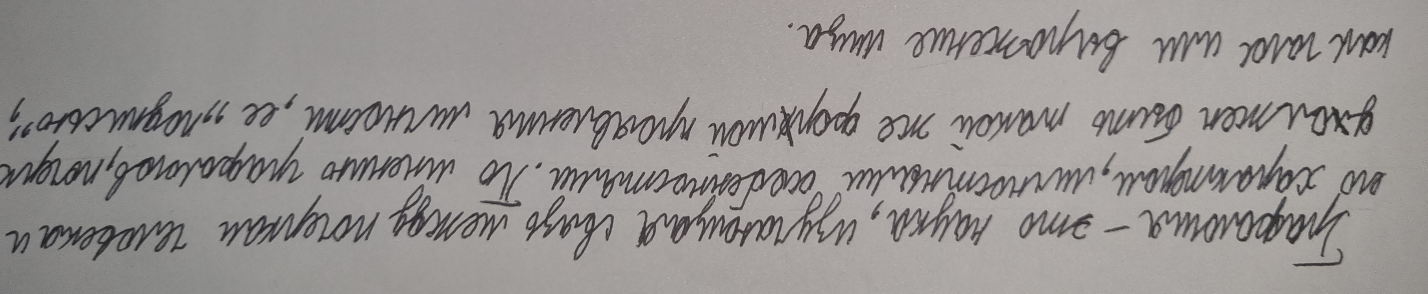 Графология – это наука, изучающая связь между почерком человека и
его характером, личностными особенностями. По мнению графологов, почерк
должен быть такой же формой проявления личности, ее „подписью”,
как глаза или выражение лица.